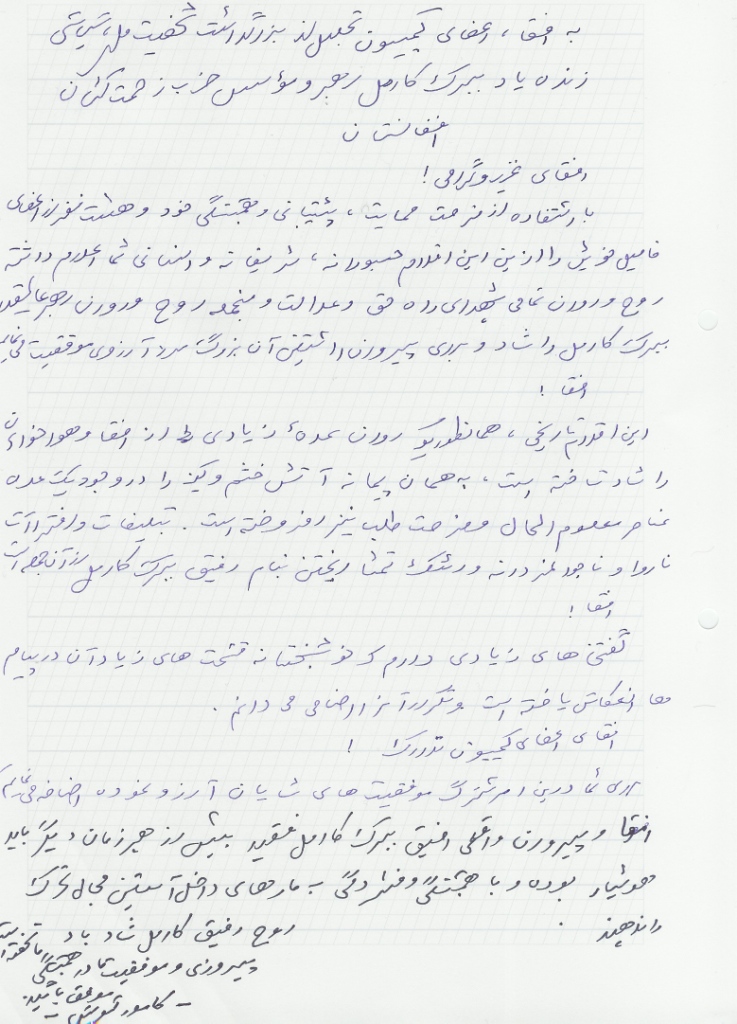 به رفقا، اعضای کمیسیون تجلیل از بزرگداشت شخصیت ملی، سیاسی
زنده یاد ببرک کارمل رهبر و مؤسس حزب زحمتکشان
افغانستان
رفقای عزیز و گرامی!
با استفاده از فرصت حمایت، پشتیبانی و همبستگی خود و هشت نفر از اعضای
فامیل خویش را از این اقدام جسورانه، شریفانه و انسانی شما اعلام داشته
روح و روان تمامی شهدای راه حق و عدالت و منجمله روح و روان رهبر عالیقدر
ببرک کارمل را شاد و برای پیروان راستین آن بزرگ مرد آرزوی موفقیت می نمایم
رفقا!
این اقدام تاریخی، همانطوریکه روان عدهٔ زیادی از رفقا و هواخواهان
را شاد ساخته است، به همان پیمانه آتش خشم و کین را در وجود یک عده
عناصر معلوم الحال و فرصت طلب نیز افروخته است. تبلیغات و افتراآت
ناروا و ناجوانمردانه و اشک تمساح ریختن بنام رفیق ببرک کارمل از آنجمله است
رفقا!
گفتنی های زیادی دارم که خوشبختانه قسمت های زیاد آن در پیام
ها انعکاس یافته است و تکرار آنرا اضافی می دانم.
رفقای اعضای کمیسیون تدارک!
برای شما درین امر سترگ موفقیت های شایان آرزو نموده اضافه می نمایم که
رفقا و پیروان واقعی رفیق ببرک کارمل فقید بیش از هر زمان دیگر باید
هوشیار بوده و با همبستگی و فشردگی به مارهای داخل آستین مجال تحرک
را ندهند.
روح رفیق کارمل شاد باد
پیروزی و موفقیت ما در همبستگی ما نهفته است
موفق باشید